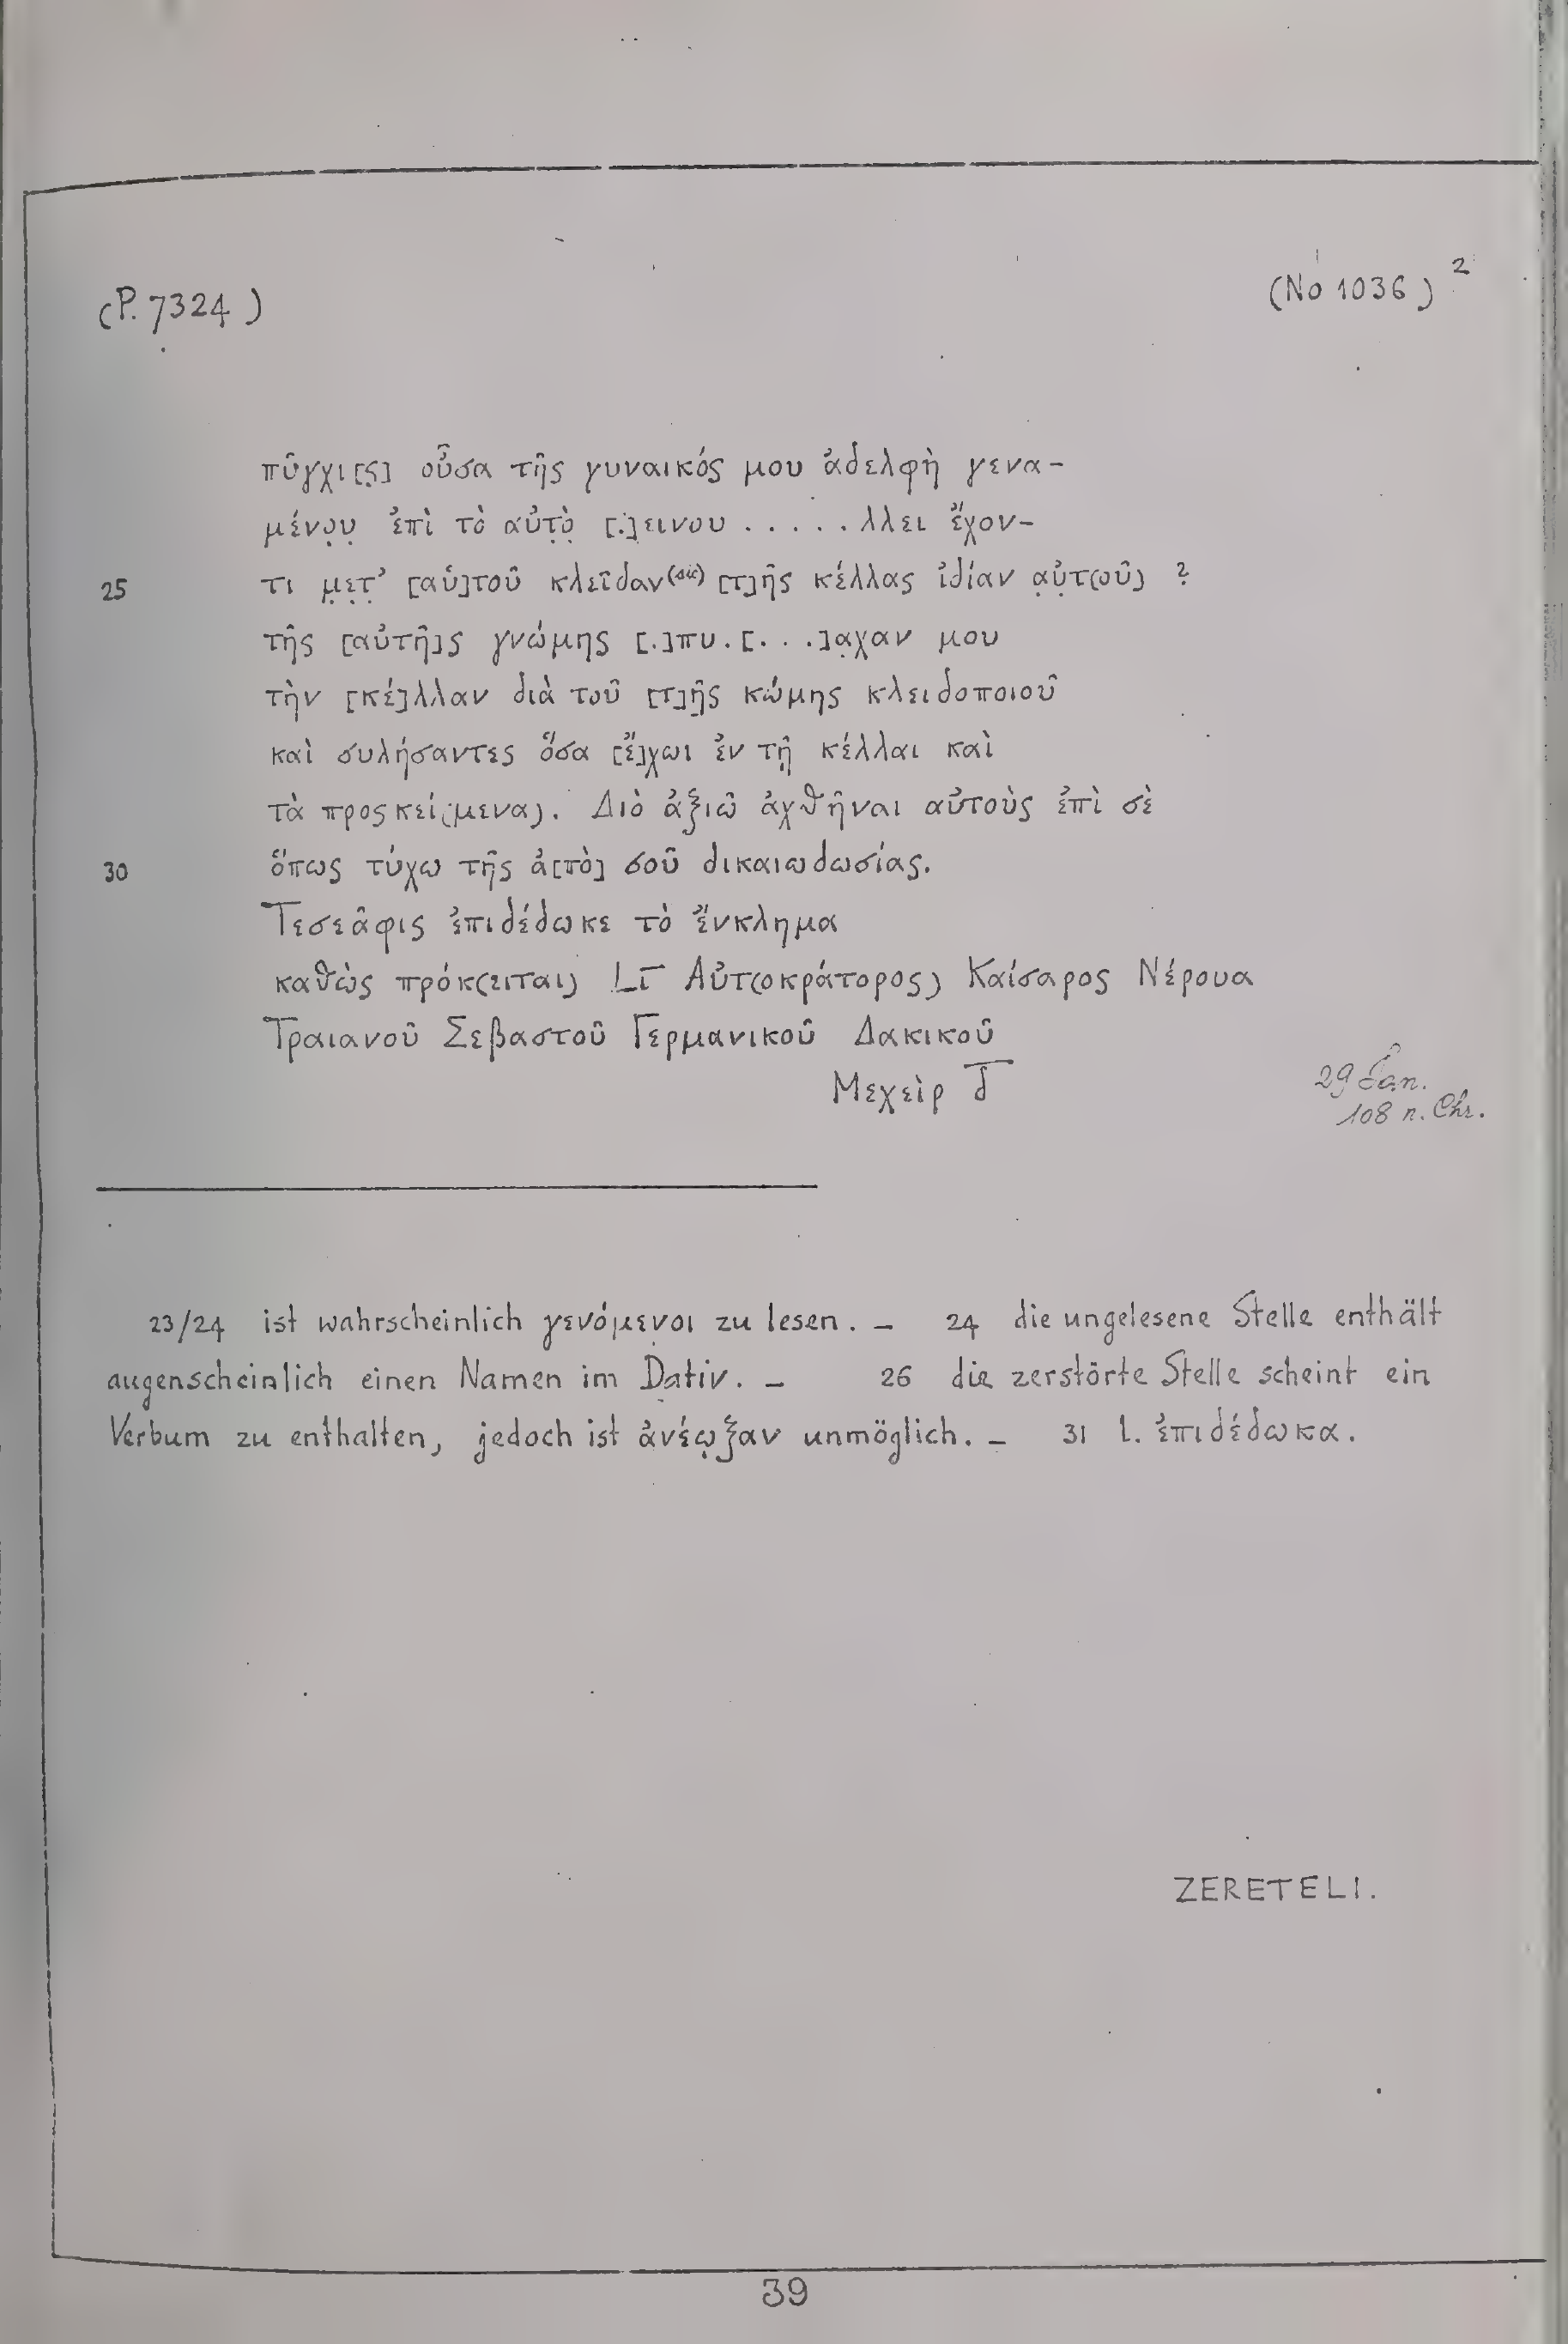 (P. 7324) (No 1036) 2
πῦγχι[ς] οὖσα τῆς γυναικός μου ἀδελφὴ γενα-
μένο̣υ̣ ἐπὶ τὸ αὐτ̣ὸ̣ [.]εινου . . . . . λλει ἔχον-
25 τι μ̣ε̣τ̣’ [αὑ]τοῦ κλεῖδαν(sic) [τ]ῆς κέλλας ἰδίαν α̣ὐ̣τ(οῦ) ?
τῆς [αὐτῆ]ς γνώμης [.]πυ.[. . .]α̣χαν μου
τὴν [κέ]λλαν διὰ τοῦ [τ]ῆ̣ς κώμης κλειδοποιοῦ
καὶ συλήσαντες ὅσα [ἔ]χωι ἐν τῇ κέλλαι καὶ
τὰ προςκεί(μενα). Διὸ ἀξιῶ ἀχθῆναι αὐτοὺς ἐπὶ σὲ
30 ὅπως τύχω τῆς ἀ[πὸ] σοῦ δικαιωδωσίας.
Τεσεᾶφις ἐπιδέδωκε τὸ ἔνκλημα
καθὼς πρόκ(ειται) LΙ̅Α̅ Αὐτ(οκράτορος) Καίσαρος Νέρουα
Τραιανοῦ Σεβαστοῦ Γερμανικοῦ Δακικοῦ
Μεχεὶρ δ̅
29 Jan.
108 n. Chr.
23/24 ist wahrscheinlich γενόμ̣ενοι zu lesen. – 24 die ungelesene Stelle enthält
augenscheinlich einen Namen im Dativ. – 26 die zerstörte Stelle scheint ein
Verbum zu enthalten, jedoch ist ἀνέῳξαν unmöglich. – 31 l. ἐπιδέδωκα.
ZERETELI.
39